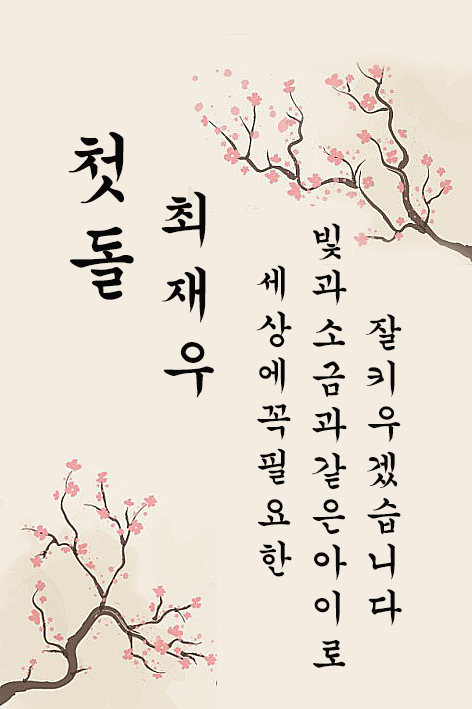 첫돌
최재우
세상에꼭필요한
빛과소금과같은아이로
잘키우겠습니다